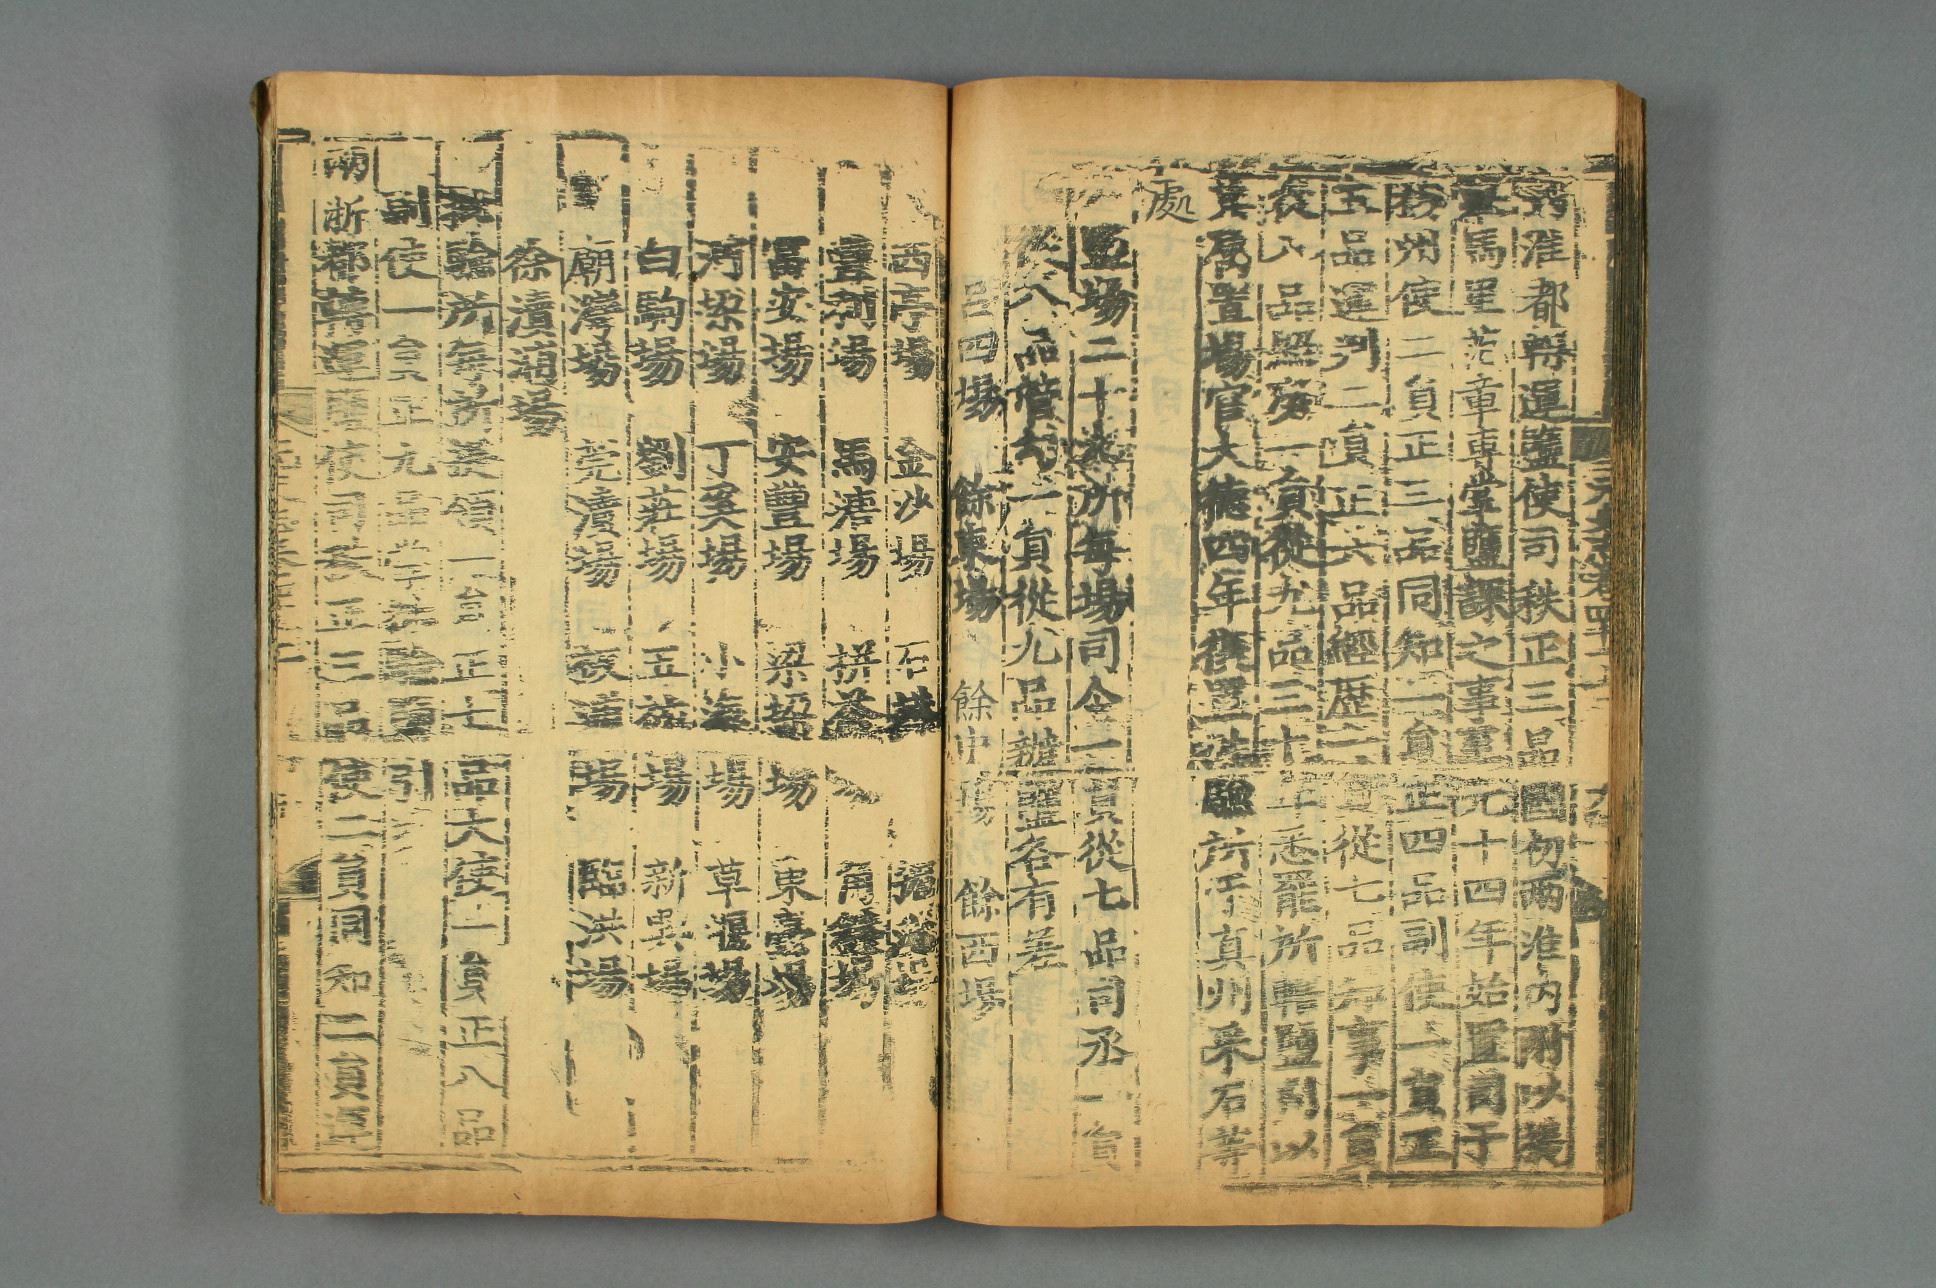 兩淮都轉運鹽使司秩正三品國初兩淮內附以
馬里范章專掌鹽課之事至元十四年始置司于
州使二員正三品同知二員正四品副使一員正
五品運判二員正六品經歷二員從七品知事一員
從八品照磨一員從九品三十年悉罷所轄鹽司以
其屬置場官大德四年復置批驗所于真州采石等
處
鹽場二十九所每場司令一員從七品司丞一員
從八品管勾一員從九品辦鹽各有差
呂四場 餘東場 餘中場 餘西場
西亭場 金沙場 石
豐利場 馬塘場 拼茶場 角斜場
富安場 安豐場 梁垛場 東臺場
河垛場 丁溪場 小海場 草堰場
白駒場 劉莊場 五祐場 新興場
廟灣場 莞瀆場 板浦場 臨洪場
徐瀆浦場
批驗所每所提領一員正七品大使一員正八品
副使一員正九品
兩浙都轉運鹽使司秩正三品使二員同知二員
元史志卷四十一